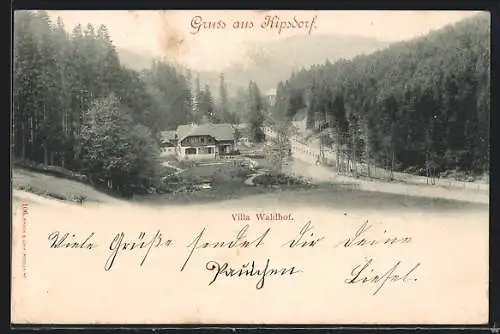 Gruss aus Kipsdorf.
Villa Waldhof.
Viele Grüße sendet Dir Deine
Liesel.
106.